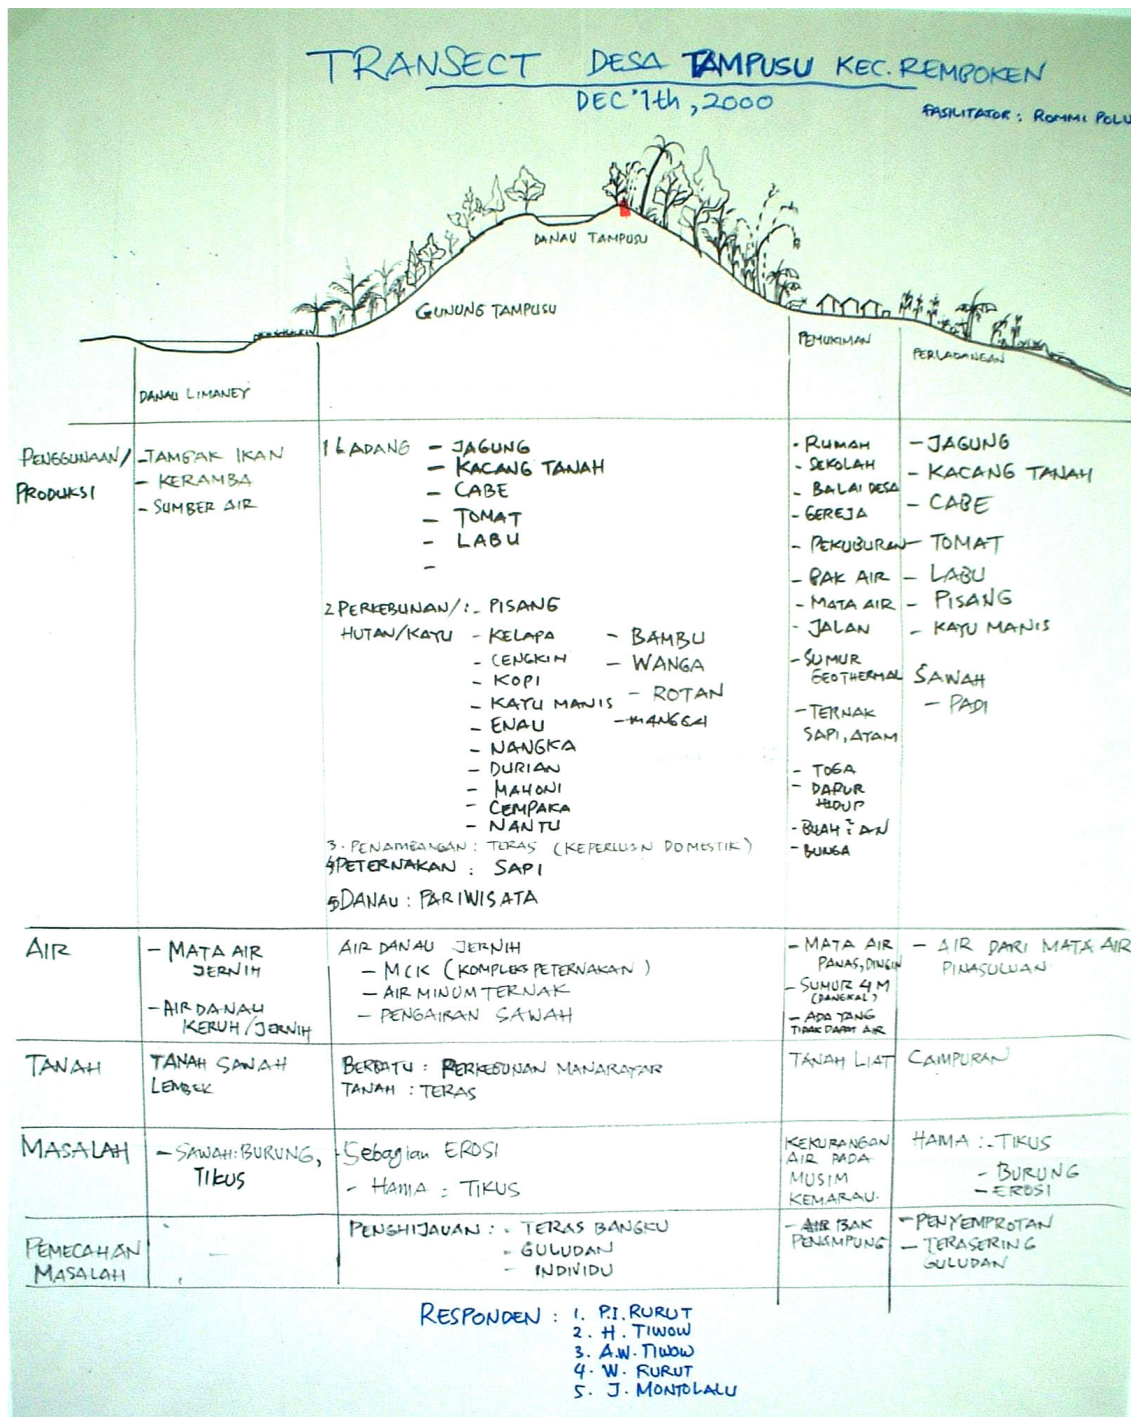 TRANSECT DESA TAMPUSU KEC. REMBOKEN
DEC '1th, 2000
FASILITATOR : ROMMI POLU
DANAU TAMPUSU
GUNUNG TAMPUSU
PEMUKIMAN
PERLADANGAN
DANAU LIMANEY
PENGGUNAAN/
PRODUKSI
- TAMBAK IKAN
- KERAMBA
- SUMBER AIR
1 LADANG - JAGUNG
- KACANG TANAH
- CABE
- TOMAT
- LABU
-
2 PERKEBUNAN/ : - PISANG
HUTAN/KAYU - KELAPA
- CENGKIH
- KOPI
- KAYU MANIS
- ENAU
- NANGKA
- DURIAN
- MAHONI
- CEMPAKA
- NANTU
- BAMBU
- WANGA
- ROTAN
- MANGGA
3. PENAMBANGAN : TERAS (KEPERLUAN DOMESTIK)
4 PETERNAKAN : SAPI
5 DANAU : PARIWISATA
- RUMAH
- SEKOLAH
- BALAI DESA
- GEREJA
- PEKUBURAN
- BAK AIR
- MATA AIR
- JALAN
- SUMUR
GEOTHERMAL
- TERNAK
SAPI, AYAM
- TOGA
- DAPUR
HIDUP
- BUAH²AN
- BUNGA
- JAGUNG
- KACANG TANAH
- CABE
- TOMAT
- LABU
- PISANG
- KAYU MANIS
SAWAH
- PADI
AIR
- MATA AIR
JERNIH
- AIR DANAU
KERUH/JERNIH
AIR DANAU JERNIH
- MCK (KOMPLEKS PETERNAKAN)
- AIR MINUM TERNAK
- PENGAIRAN SAWAH
- MATA AIR
PANAS, DINGIN
- SUMUR 4 M
(DANGKAL)
- ADA YANG
TIDAK DAPAT AIR
- AIR DARI MATA AIR
PINASULUAN
TANAH
TANAH SAWAH
LEMBEK
BERBATU : PERKEBUNAN MANARAYAR
TANAH : TERAS
TANAH LIAT
CAMPURAN
MASALAH
- SAWAH : BURUNG,
TIKUS
- Sebagian EROSI
- HAMA : TIKUS
KEKURANGAN
AIR PADA
MUSIM
KEMARAU.
HAMA : - TIKUS
- BURUNG
- EROSI
PEMECAHAN
MASALAH
-
PENGHIJAUAN : - TERAS BANGKU
- GULUDAN
- INDIVIDU
- AIR BAK
PENAMPUNG
- PENYEMPROTAN
- TERASERING
GULUDAN
RESPONDEN : 1. P.I. RURUT
2. H. TIWOW
3. A.W. TIWOW
4. W. RURUT
5. J. MONTOLALU